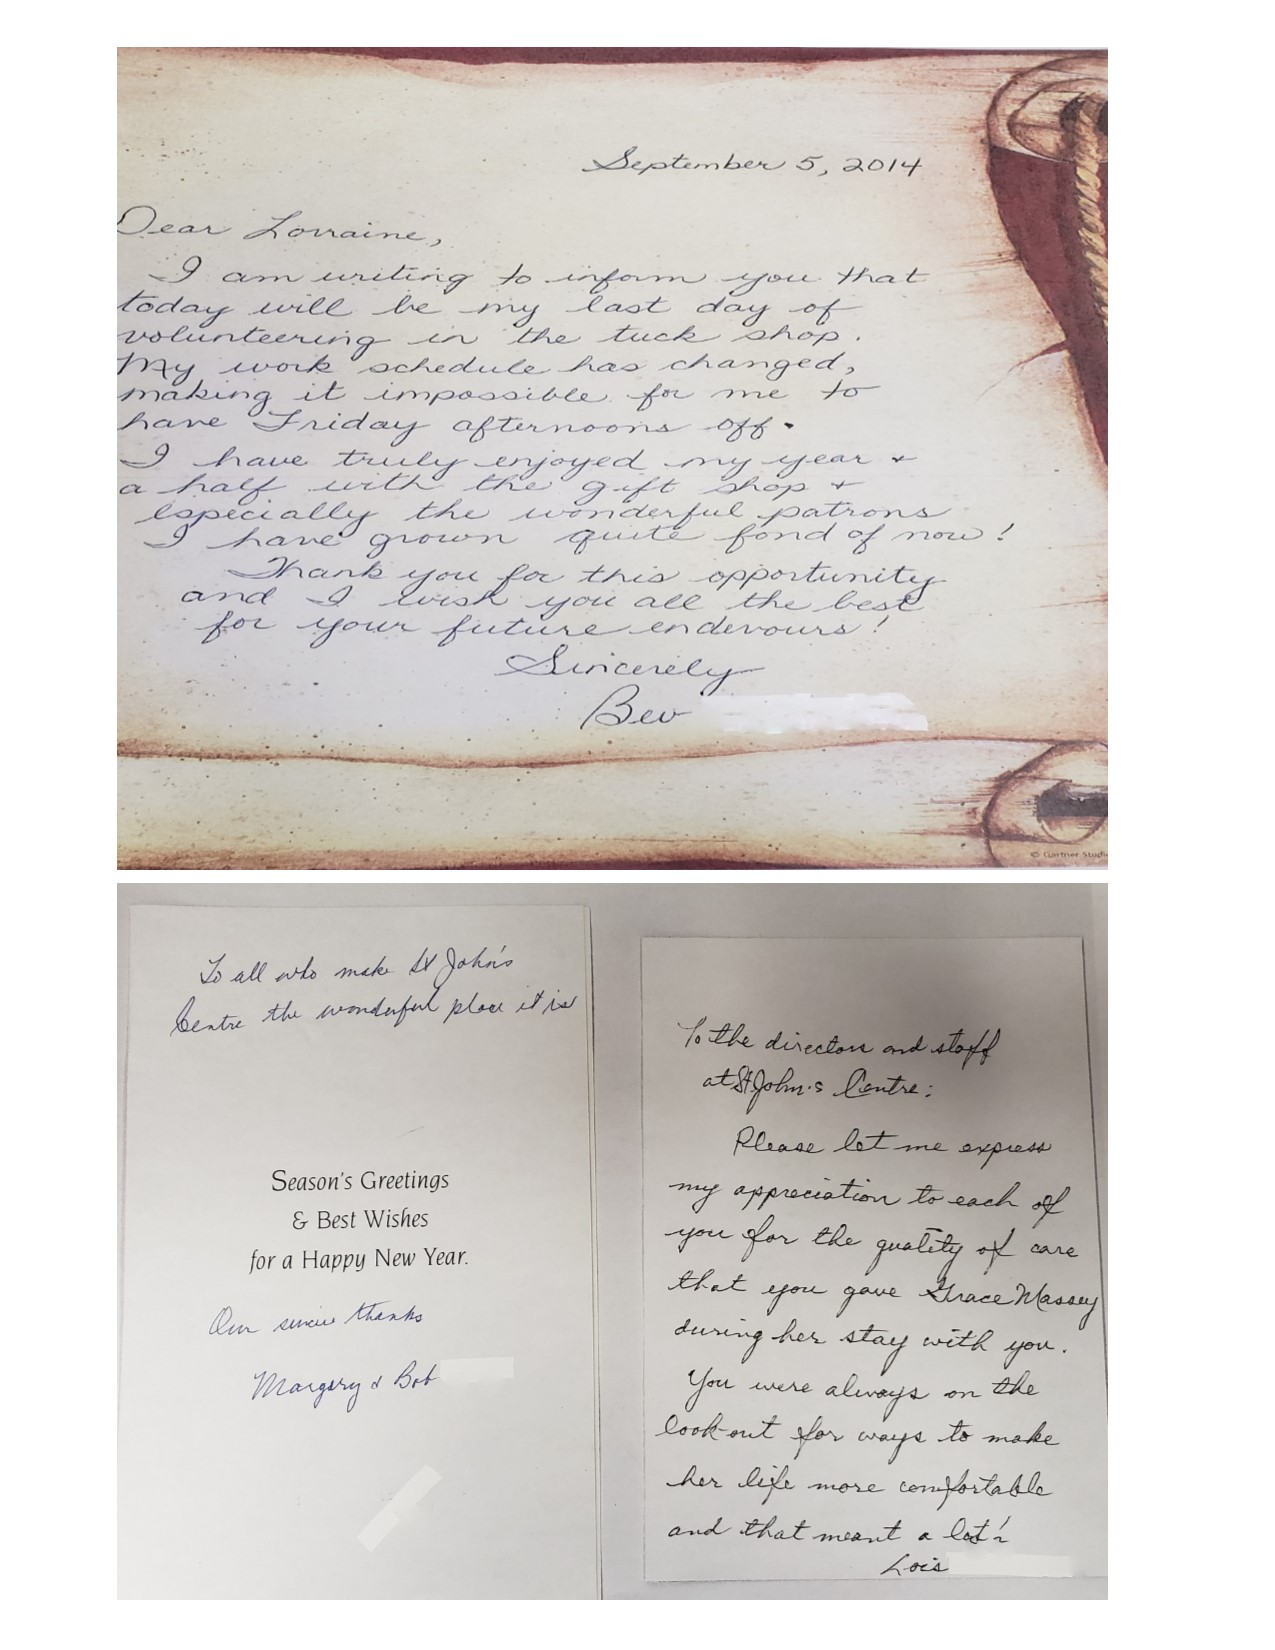 September 5, 2014
Dear Lorraine,
I am writing to inform you that
today will be my last day of
volunteering in the tuck shop.
My work schedule has changed,
making it impossible for me to
have Friday afternoons off.
I have truly enjoyed my year +
a half with the gift shop +
especially the wonderful patrons
I have grown quite fond of now!
Thank you for this opportunity
and I wish you all the best
for your future endevours!
Sincerely
Bev
© Gartner Studi
To all who make St John's
Centre the wonderful place it is
Season's Greetings
& Best Wishes
for a Happy New Year.
Our sincere thanks
Margery & Bob
To the directors and staff
at St John's Centre:
Please let me express
my appreciation to each of
you for the quality of care
that you gave Grace Massey
during her stay with you.
You were always on the
look-out for ways to make
her life more comfortable
and that meant a lot!
Lois